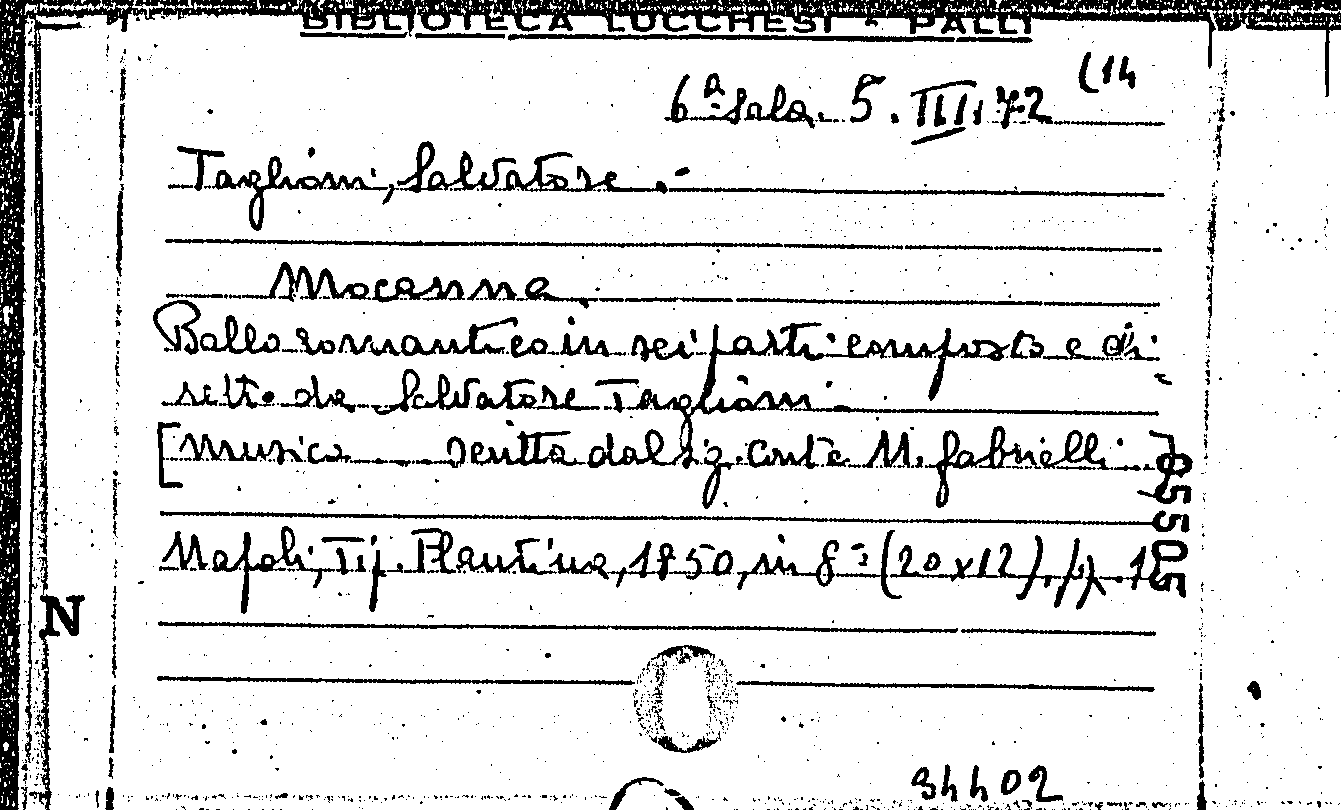 BIBLIOTECA LUCCHESI - PALLI
6ª Sala. 5. III. 72 (14
Taglioni, Salvatore .-
Mocanna.
Ballo romantico in sei parti composto e di-
retto da Salvatore Taglioni.-
[Musica .... scritta dal sig. conte N. Gabrielli ..]
Napoli, Tip. Flautina, 1850, in 8º (20x12), pp.
N
34402